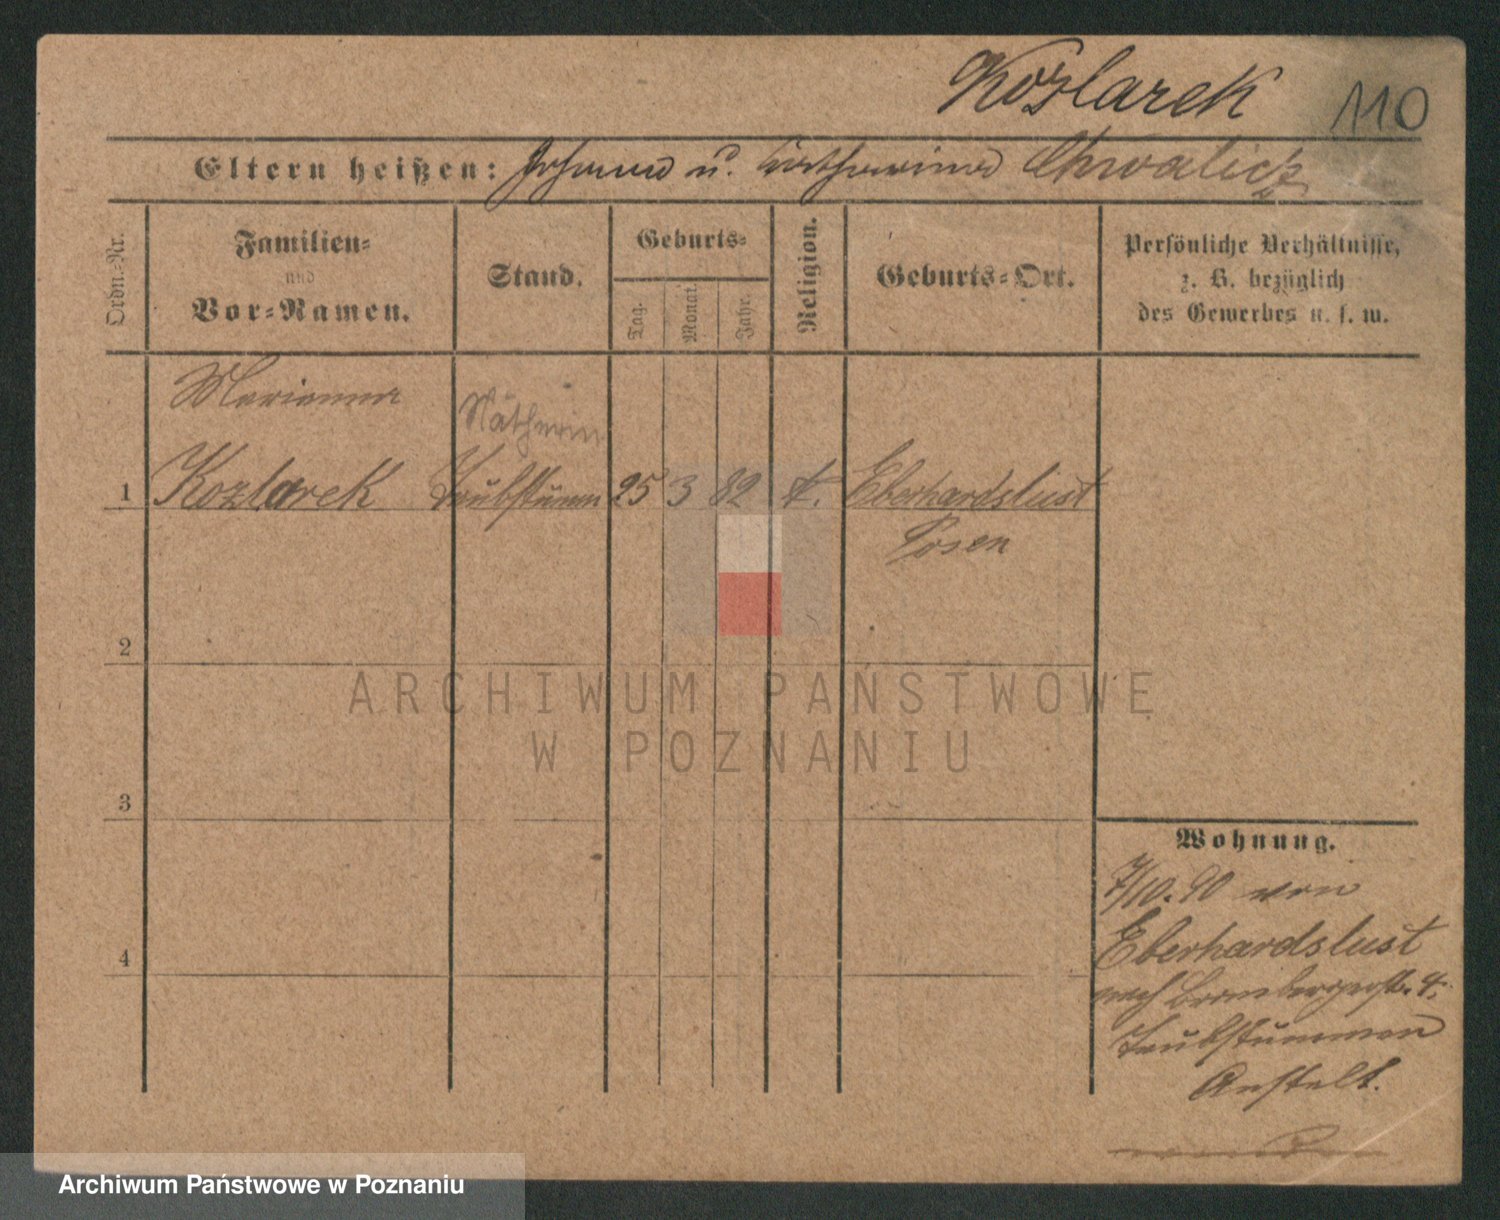 Kozlarek 110
Eltern heißen: Johann u. Katharina Chwalicz
Ordn.-Nr.
Familien-
und
Vor-Namen.
Stand.
Geburts-
Tag.
Monat.
Jahr.
Religion.
Geburts-Ort.
Persönliche Verhältnisse,
z. B. bezüglich
des Gewerbes u. s. w.
Marianna
Nätherin
1 Kozlarek Taubstumm 25 3 82 k. Eberhardslust
Posen
2
ARCHIWUM PAŃSTWOWE
W POZNANIU
3
Wohnung.
7/10. 90 von
Eberhardslust
4
nach Brombergerstr. 4.
Taubstummen
Anstalt.
wenden
Archiwum Państwowe w Poznaniu